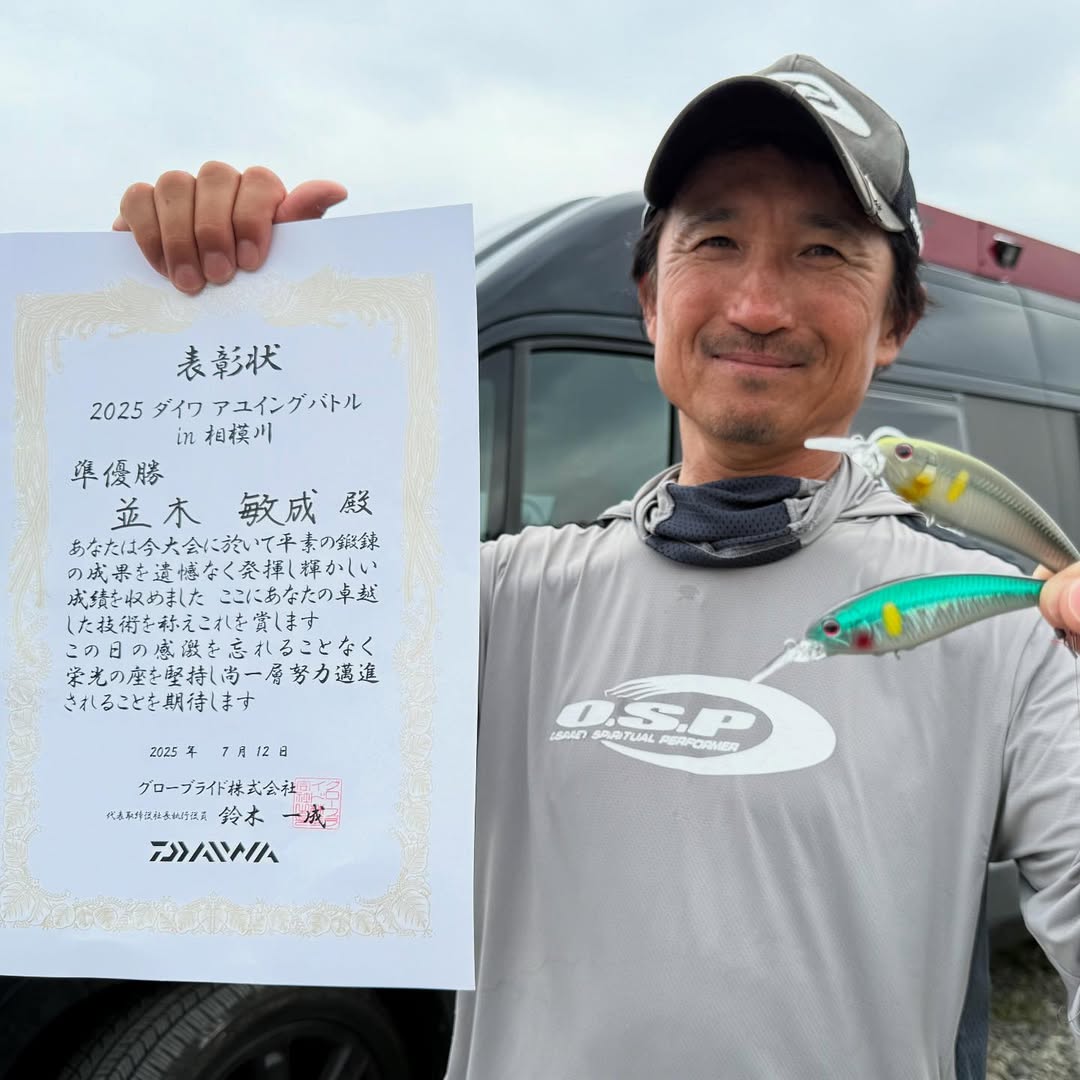 表彰状
2025 ダイワ アユイングバトル
in 相模川
準優勝
並木 敏成 殿
あなたは今大会に於いて平素の鍛錬
の成果を遺憾なく発揮し輝かしい
成績を収めました ここにあなたの卓越
した技術を称えこれを賞します
この日の感激を忘れることなく
栄光の座を堅持し尚一層努力邁進
されることを期待します
2025 年 7 月 12 日
グローブライド株式会社
代表取締役社長執行役員 鈴木 一成
DAIWA
O.S.P
SPIRITUAL PERFORMER